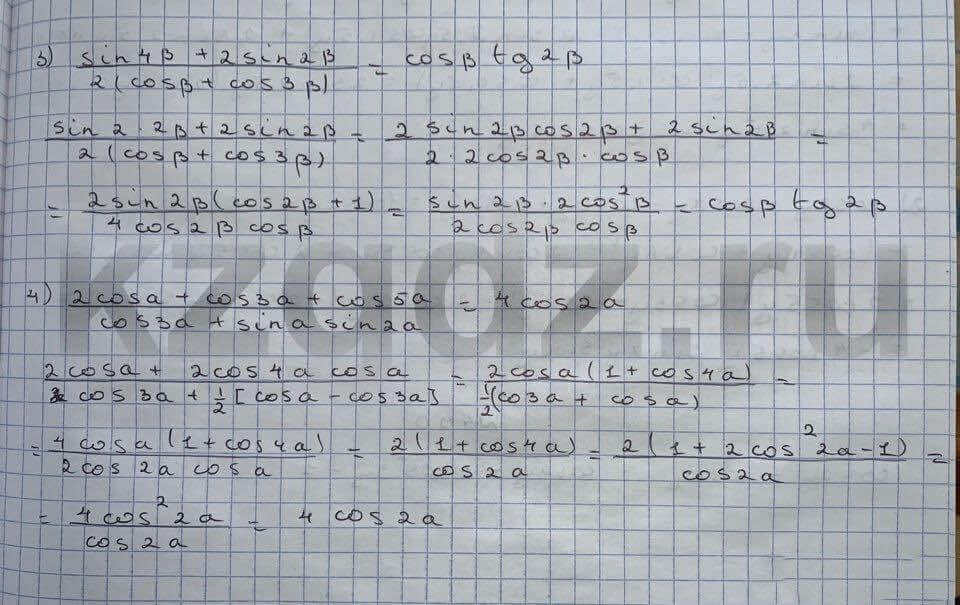 3) (sin4β + 2sin2β) / (2(cosβ + cos3β)) = cosβ tg2β
(sin2·2β + 2sin2β) / (2(cosβ + cos3β)) = (2sin2βcos2β + 2sin2β) / (2·2cos2β·cosβ) =
= (2sin2β(cos2β + 1)) / (4cos2βcosβ) = (sin2β·2cos²β) / (2cos2βcosβ) = cosβ tg2β
kzgdz.ru
4) (2cosa + cos3a + cos5a) / (cos3a + sina sin2a) = 4cos2a
(2cosa + 2cos4a cosa) / (cos3a + ½[cosa - cos3a]) = (2cosa(1 + cos4a)) / (½(co3a + cosa)) =
= (4cosa(1 + cos4a)) / (2cos2a cosa) = (2(1 + cos4a)) / (cos2a) = (2(1 + 2cos²2a - 1)) / (cos2a) =
= (4cos²2a) / (cos2a) = 4cos2a